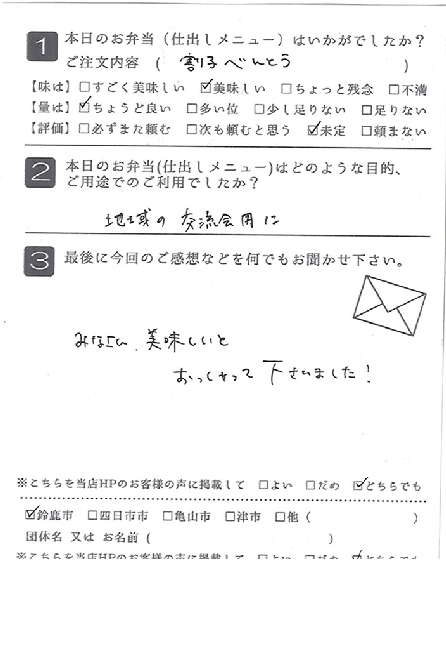 1 本日のお弁当(仕出しメニュー)はいかがでしたか?
ご注文内容 ( 割子べんとう )
【味は】□すごく美味しい ☑美味しい □ちょっと残念 □不満
【量は】☑ちょうど良い □多い位 □少し足りない □足りない
【評価】□必ずまた頼む □次も頼むと思う ☑未定 □頼まない
2 本日のお弁当(仕出しメニュー)はどのような目的、
ご用途でのご利用でしたか?
地域の交流会用に
3 最後に今回のご感想などを何でもお聞かせ下さい。
みなさん、美味しいと
おっしゃって下さいました!
※こちらを当店HPのお客様の声に掲載して □よい □だめ ☑どちらでも
☑鈴鹿市 □四日市市 □亀山市 □津市 □他 ( )
団体名 又は お名前 ( )
※こちらを当店HPのお客様の声に掲載して □よい □だめ ☑どちらでも